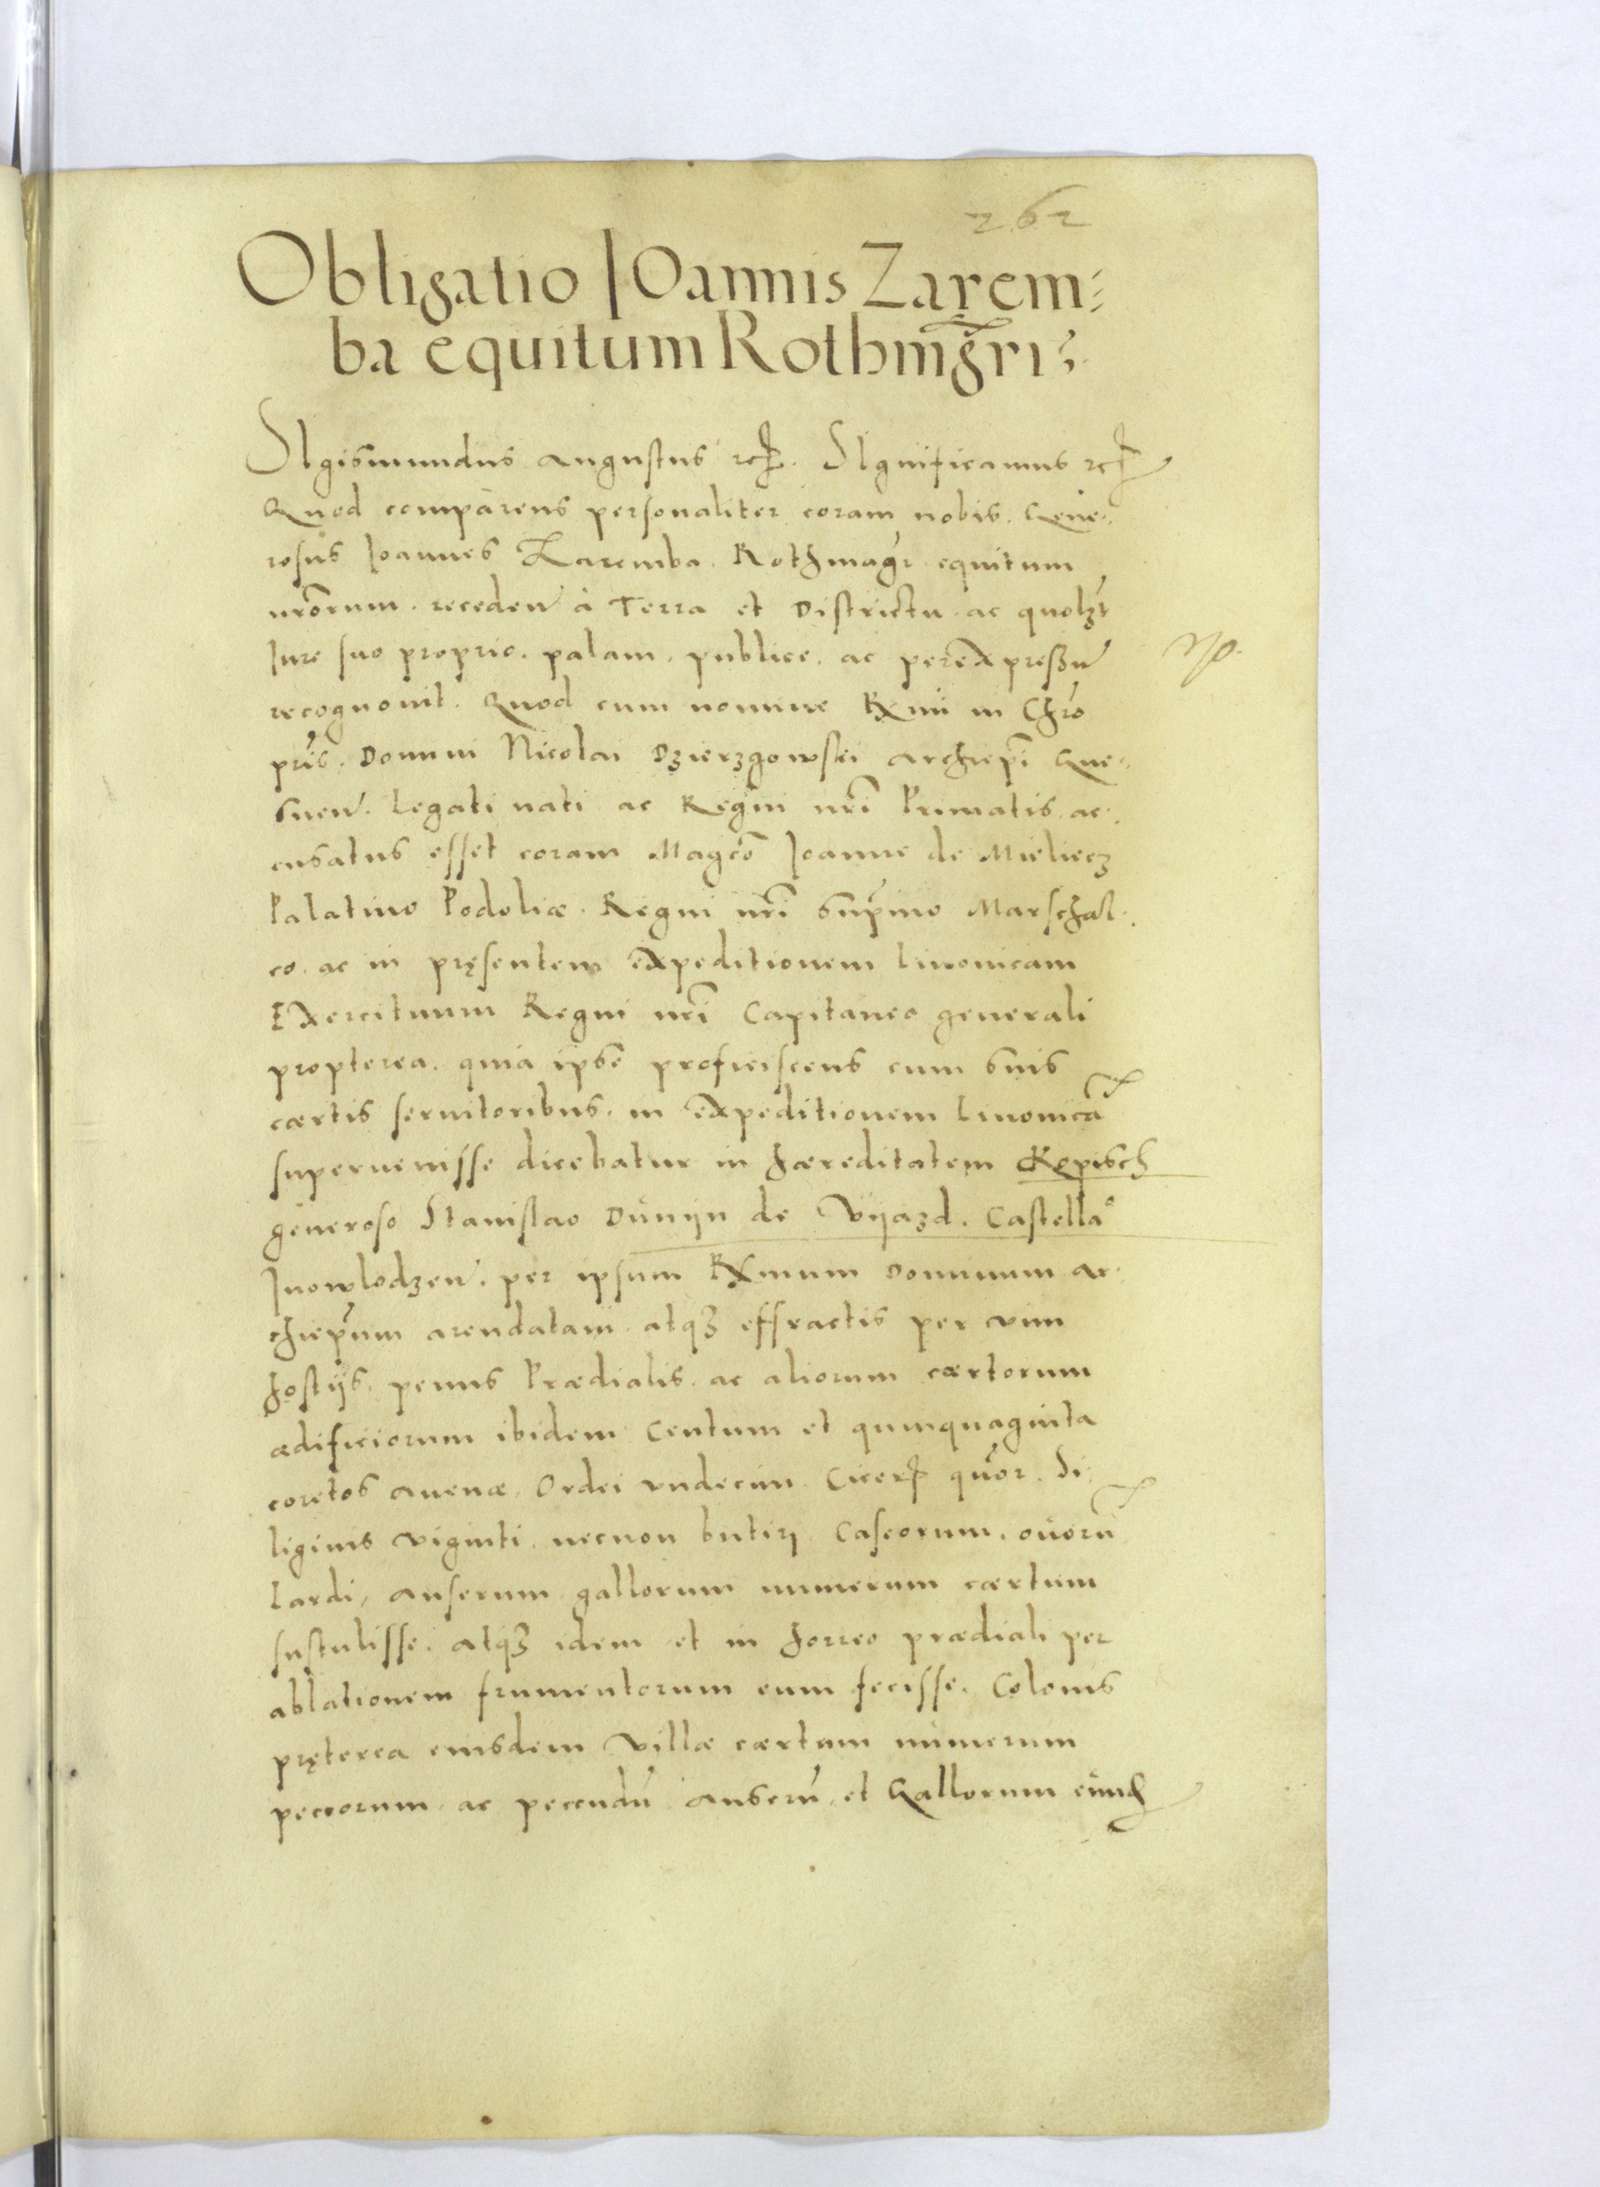 262
Obligatio Ioannis Zarem⸗
ba equitum Rothmgri⸗
SIgismundus Augustus etc. SIgnificamus etc.
Quod comparens personaliter coram nobis. Gene⸗
rosus Ioannes Zaremba. Rothmagr equitum
nrorum. receden à Terra et Districtu. ac quolzt
Iure suo proprio. palam. publice. ac perexpressu
recognouit. Quod cum nomine Rxmi in Chro
pris. Domini Nicolai Dzierzgowski archiepi Gne⸗
snen. Legati nati ac Regni nri Primatis. ac⸗
cusatus esset coram Magco Ioanne de Mieliecz
Palatino Podoliæ. Regni nri supmo Marschal⸗
co. ac in pręsentem expeditionem Liuonicam
Exercituum Regni nri Capitaneo generali
propterea. quia ipse proficiscens cum suis
cærtis seruitoribus. in expeditionem Liuonicã
superuenisse dicebatur in hæreditatem Ropisch
generoso Stanislao Dunijn de Vijazd. Castellaº
Inowlodzen. per ipsum Rxmum Dominum Ar⸗
chiepum arendatam. atqz effractis per vim
hostijs. penus Prædialis. ac aliorum cærtorum
ædificiorum ibidem Centum et quinquaginta
coretos auenæ. Ordei vndecim. Cicer quor. Si⸗
liginis viginti. necnon butiri. Caseorum. ouorũ
Lardi, anserum gallorum numerum cærtum
sustulisse. atqz idem et in horreo prædiali per
ablationem frumentorum eum fecisse. Colonis
pręterea eiusdem Villæ cærtum numerum
pecorum. ac pecudũ anserũ. et Gallorum